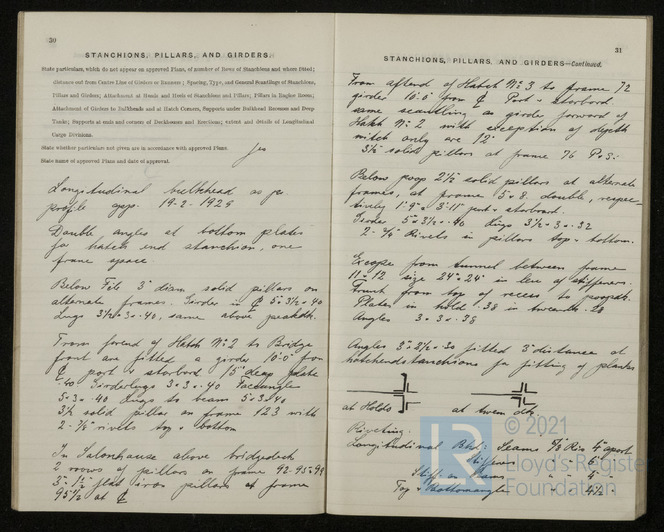 30
STANCHIONS, PILLARS, AND GIRDERS.
State particulars, which do not appear on approved Plans, of number of Rows of Stanchions and where fitted;
distance out from Centre Line of Girders or Runners; Spacing, Type, and General Scantlings of Stanchions,
Pillars and Girders; Attachment at Heads and Heels of Stanchions and Pillars; Pillars in Engine Room;
Attachment of Girders to Bulkheads and at Hatch Corners, Supports under Bulkhead Recesses and Deep
Tanks; Supports at ends and corners of Deckhouses and Erections; extent and details of Longitudinal
Cargo Divisions.
State whether particulars not given are in accordance with approved Plans. Yes
State name of approved Plans and date of approval.
Longitudinal bulkhead as pr.
profile app. 19-2-1929
Double angles at bottom plates
for hatch end stanchion, one
frame space
Below Fcle 3" diam solid pillars on
alternate frames. Girder in ₵ 5·3½·40
Lugs 3½·3·.40, same above peaktank.
From forend of Hatch No 2 to Bridge
front are fitted a girder 10'-0" from
₵ port & starbord 15" deep plate
·40 Girderlugs 3·3·.40 Faceangle
5·3·.40 Lugs to beam 5·3·40
3½ solid pillar on frame 123 with
2-⅞ rivets top & bottom
In Salonhouse above bridgedeck
2 rows of pillars on frame 92-95-98
3"-1½" flat iron pillars at frame
95½ at ₵
31
STANCHIONS, PILLARS, AND GIRDERS—Continued.
From aftend of Hatch No 3 to frame 72
girder 10'-0" from ₵ Port & starbord
same scantling as girder forward of
Hatch No 2 with exception of depth
which only are 12"
3½" solid pillars at frame 76 P&S.
Below poop 2½" solid pillars at alternate
frames, at frame 5 & 8 double, respec-
tively 1'-9" & 3'-11" port & starbord.
Girder 5"·3½·.40 Lugs 3½·3·.32
2-¾" Rivets in pillars top & bottom.
Escape from tunnel between frame
11-12 size 24"·24" in lieu of stiffeners.
Trunk from top of recess to poopdk.
Plates in hold .38 in tweendk .28
Angles 3·3·.38
Angles 3"·2½·30 fitted 3" distance at
hatchendstanchions for fitting of planks
at Holds at tween dk
Riveting.
Longitudinal Bhd: Seams ⅝ Riv. 4" apart
Stiffener
Top & Bottomangle 4½
© 2021
Lloyd's Register
Foundation
LR